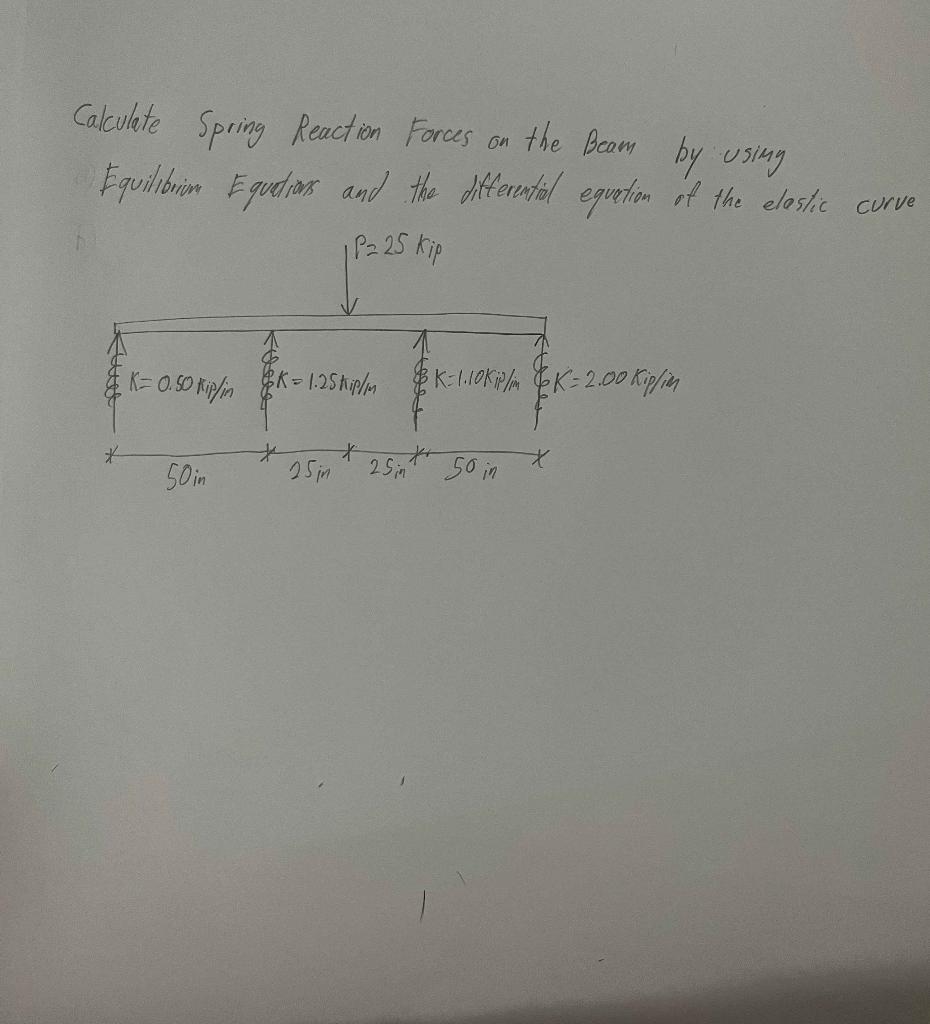 Calculate Spring Reaction Forces on the Beam by using
Equilibrium Equations and the differential equation of the elastic curve
P=25 Kip
K=0.50 Kip/in K=1.25 Kip/in K=1.10 Kip/in K=2.00 Kip/in
50in 25in 25in 50 in